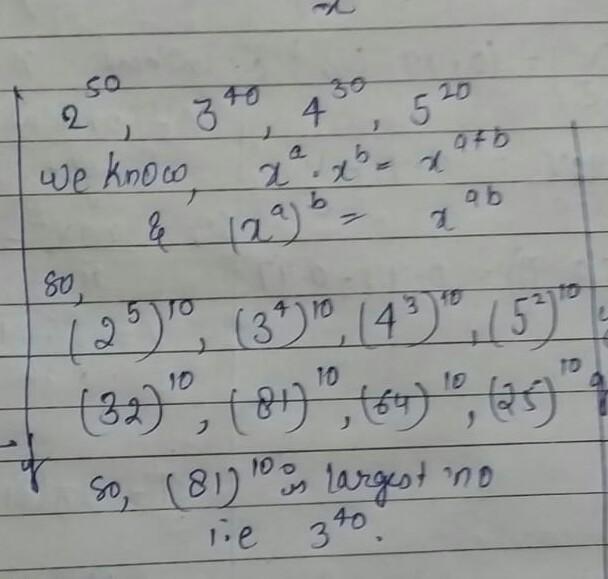 2^50, 3^40, 4^30, 5^20
we know, x^a · x^b = x^a+b
& (x^a)^b = x^ab
so,
(2^5)^10, (3^4)^10, (4^3)^10, (5^2)^10
(32)^10, (81)^10, (64)^10, (25)^10
so, (81)^10 is largest no
i.e 3^40.